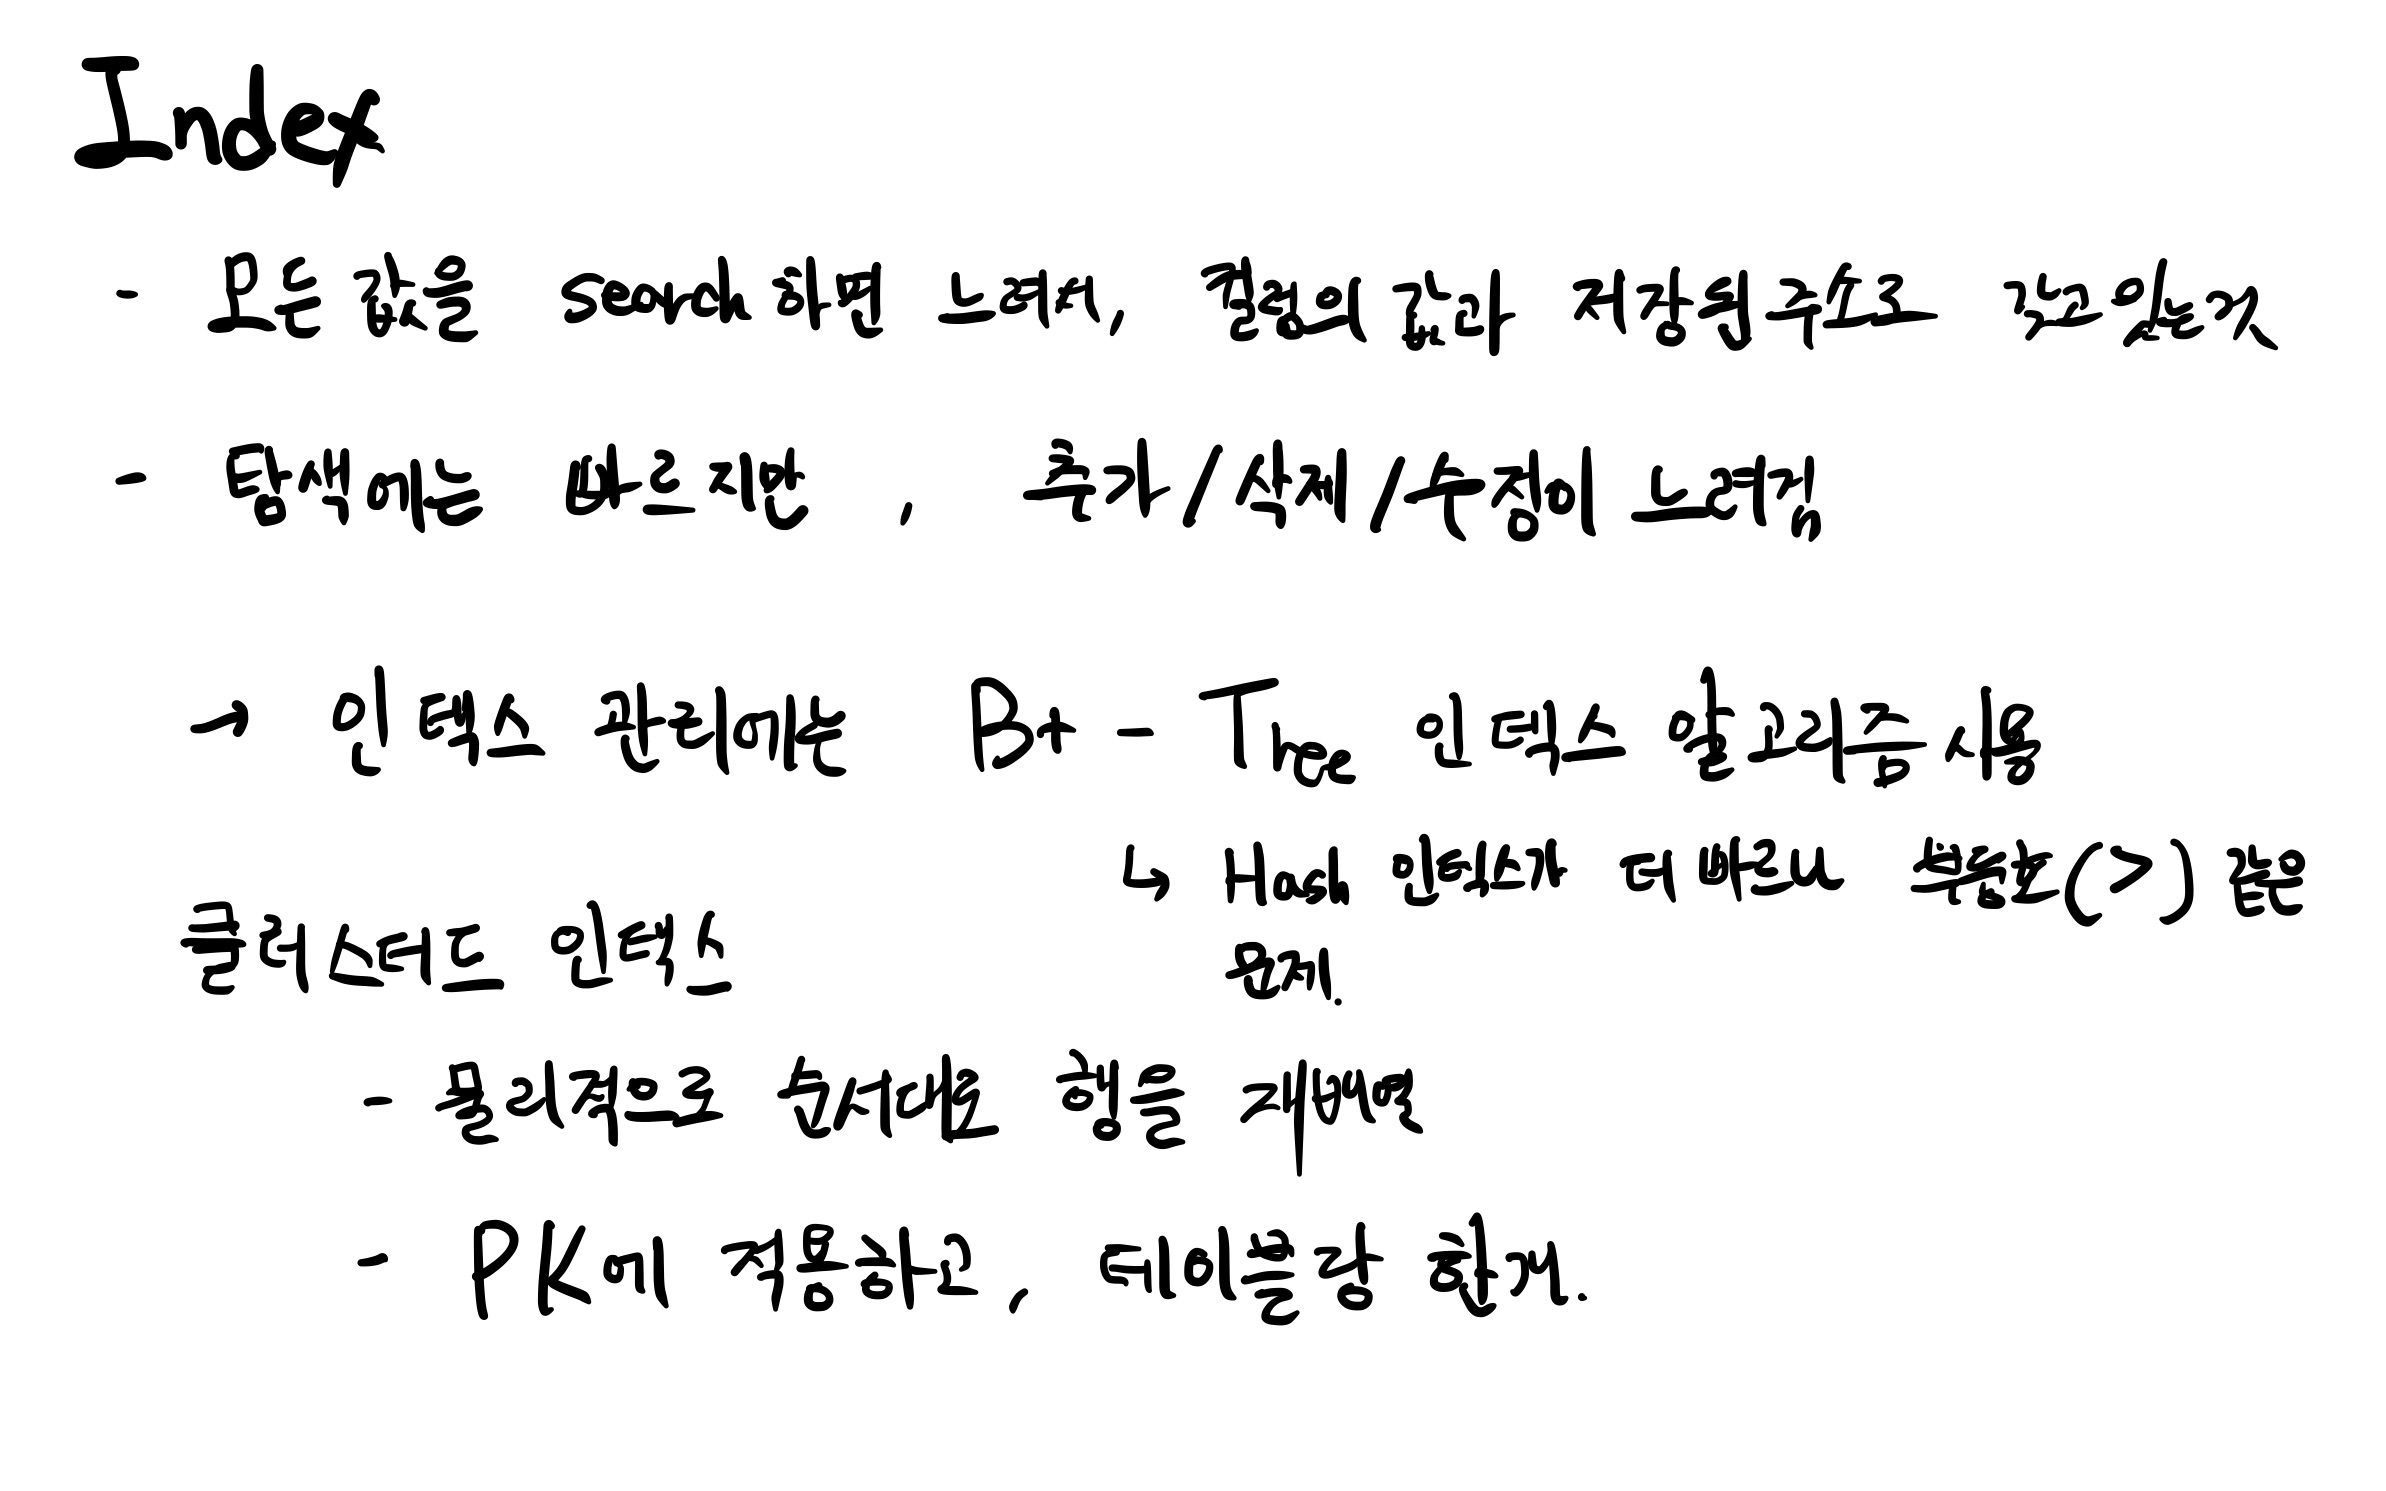 Index
- 모든 값을 search 하면 느려서, 컬럼의 값과 저장된 주소로 갖고 있는 것
- 탐색에는 빠르지만 , 추가/삭제/수정이 느려짐
→ 인덱스 관리에는 B+ - Tree 인덱스 알고리즘 사용
↳ Hash 인덱스가 더 빠르나 부등호(>) 등은
문제.
클러스터드 인덱스
- 물리적으로 순서대로 행을 재배열
- PK에 적용하고, 테이블당 한개.